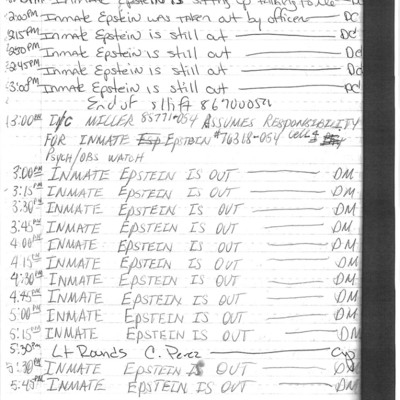 Inmate Epstein is sitting up talking to me — DC
2:00PM Inmate Epstein was taken out by officer — DC
2:15PM Inmate Epstein is still out — DC
2:30PM Inmate Epstein is still out — DC
2:45PM Inmate Epstein is still out — DC
3:00PM Inmate Epstein is still out — DC
End of shift
3:00PM I/C MILLER 85771-054 ASSUMES RESPONSIBILITY
FOR INMATE Esp EPSTEIN #76318-054 cell 4
PSYCH/OBS WATCH
3:00PM INMATE EPSTEIN IS OUT — DM
3:15PM INMATE EPSTEIN IS OUT — DM
3:30PM INMATE EPSTEIN IS OUT — DM
3:45PM INMATE EPSTEIN IS OUT — DM
4:00PM INMATE EPSTEIN IS OUT — DM
4:15PM INMATE EPSTEIN IS OUT — DM
4:30PM INMATE EPSTEIN IS OUT — DM
4:45PM INMATE EPSTEIN IS OUT — DM
5:00PM INMATE EPSTEIN IS OUT — DM
5:15PM INMATE EPSTEIN IS OUT — DM
5:30PM Lt Rounds C. Perez —
5:30PM INMATE EPSTEIN IS OUT — DM
5:45PM INMATE EPSTEIN IS OUT — DM